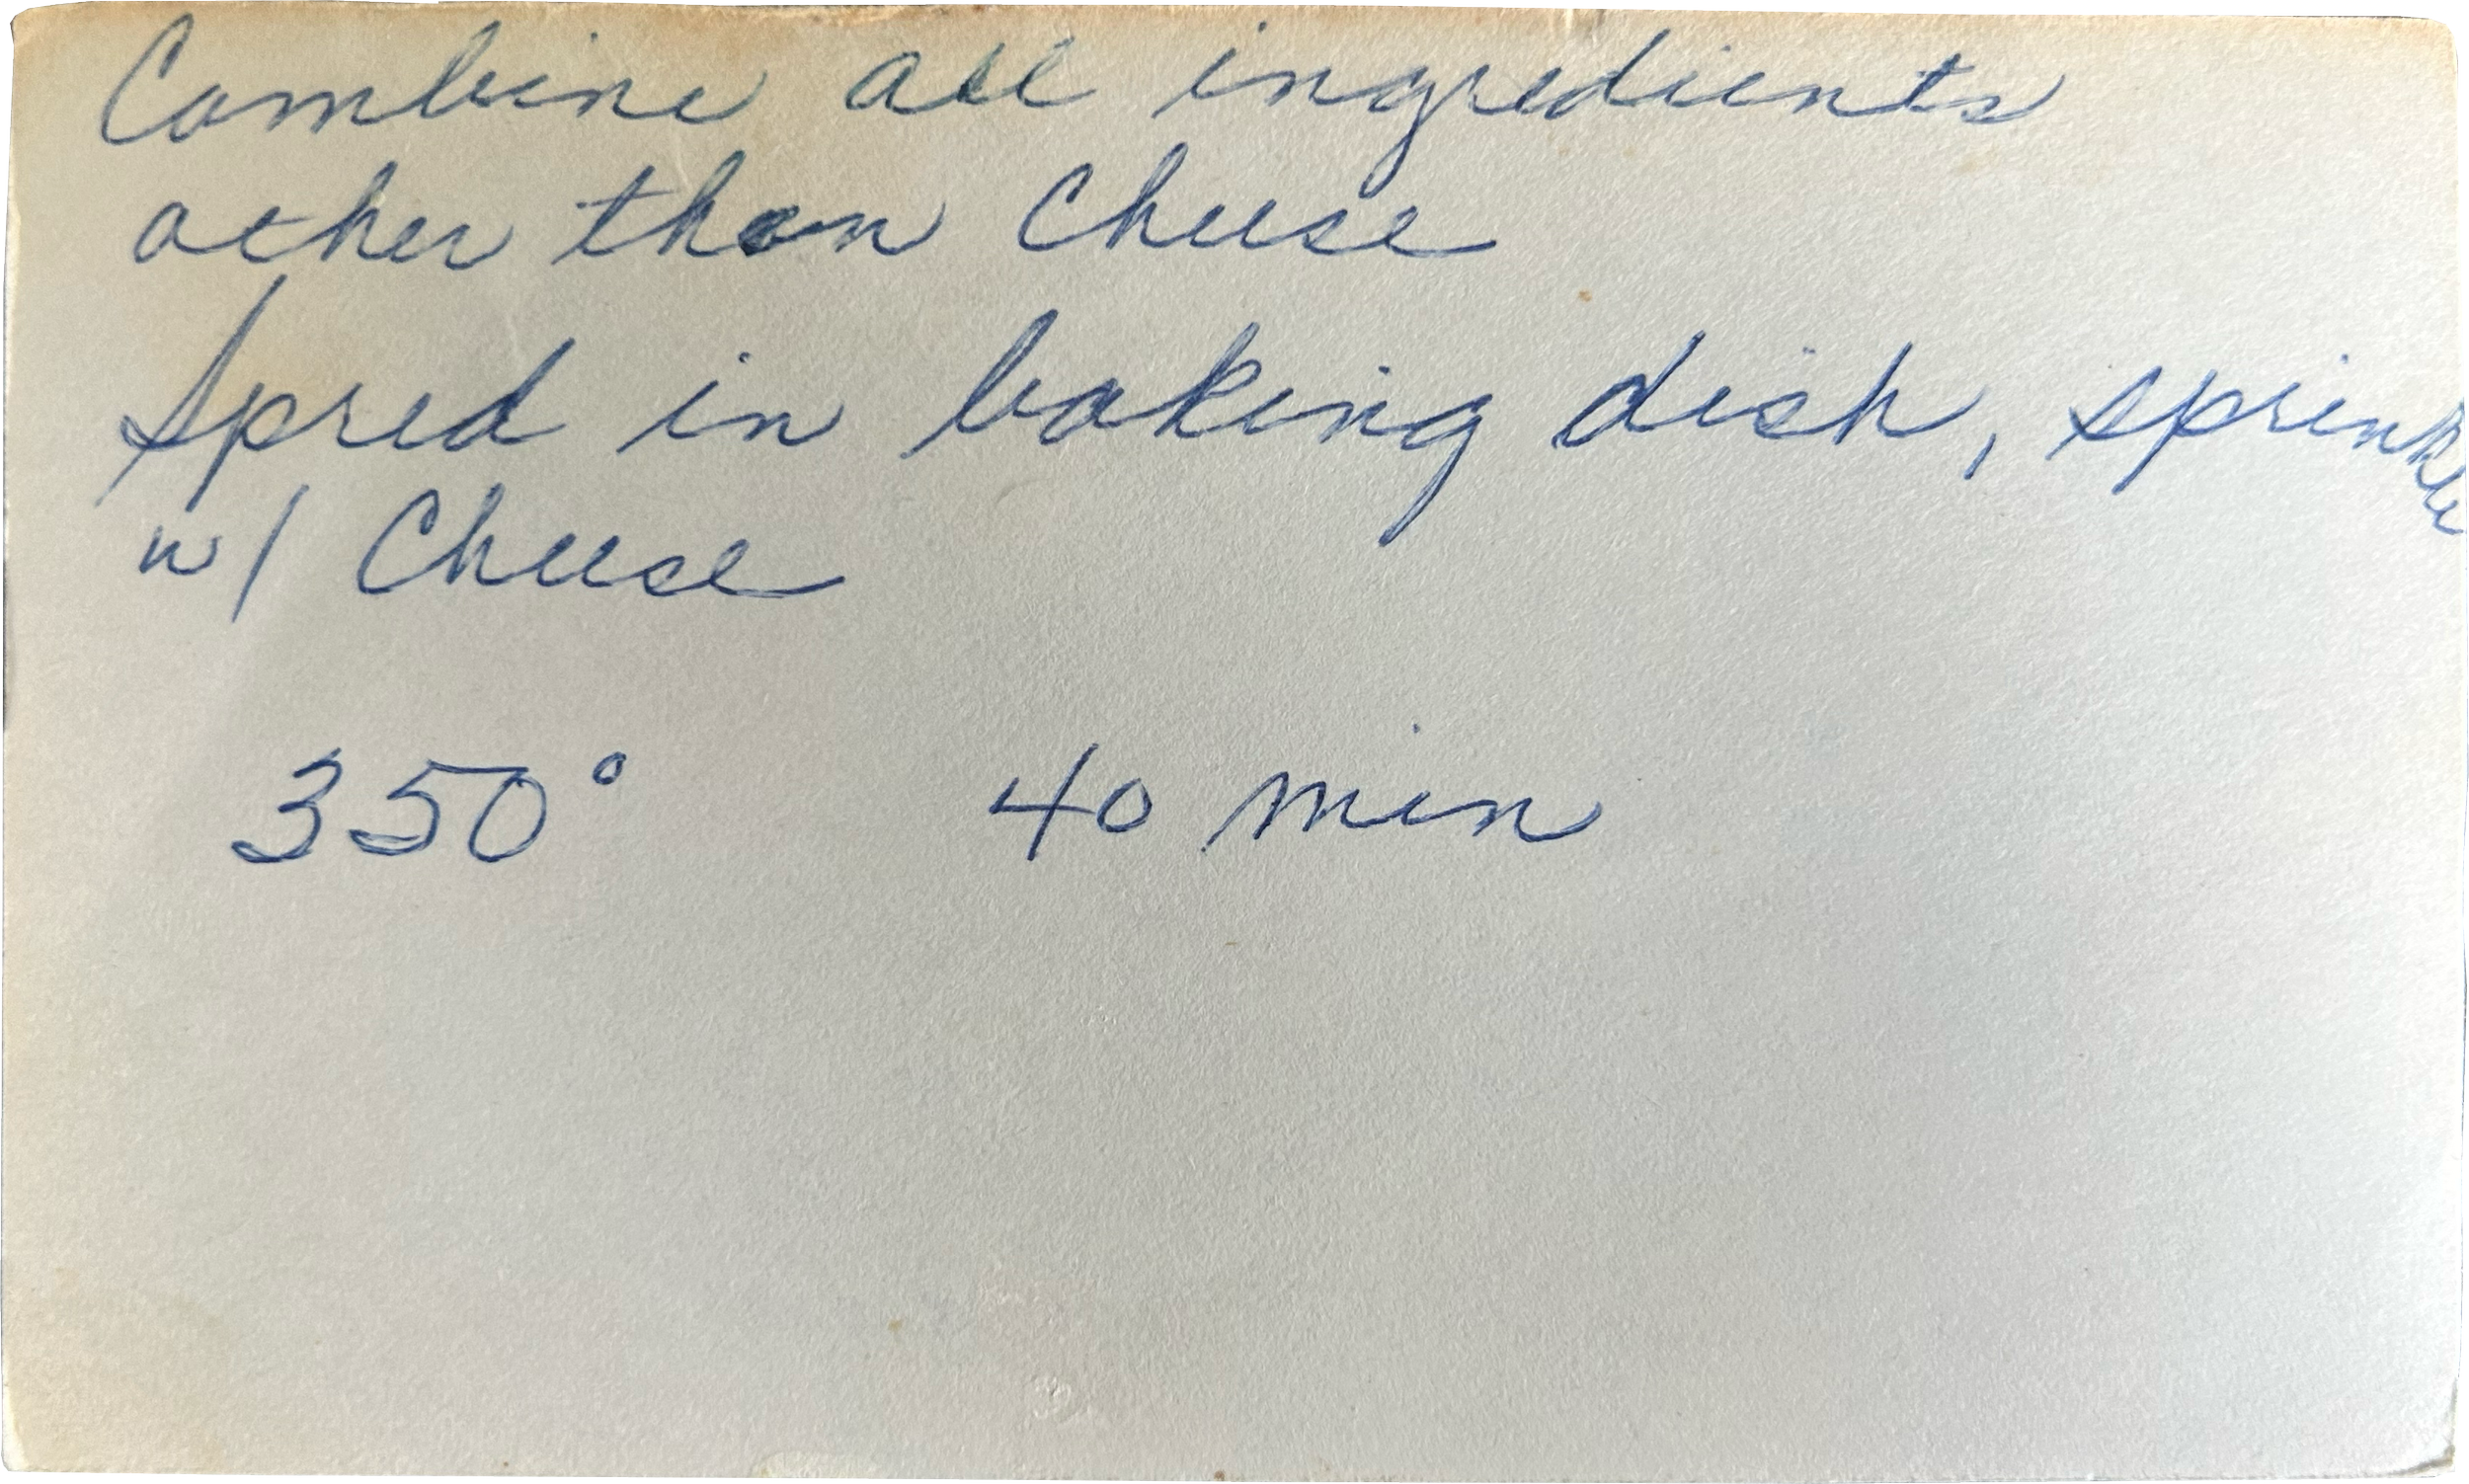 Combine all ingredients
other than Cheese
Spred in baking dish, sprinkle
w/ Cheese
350° 40 min